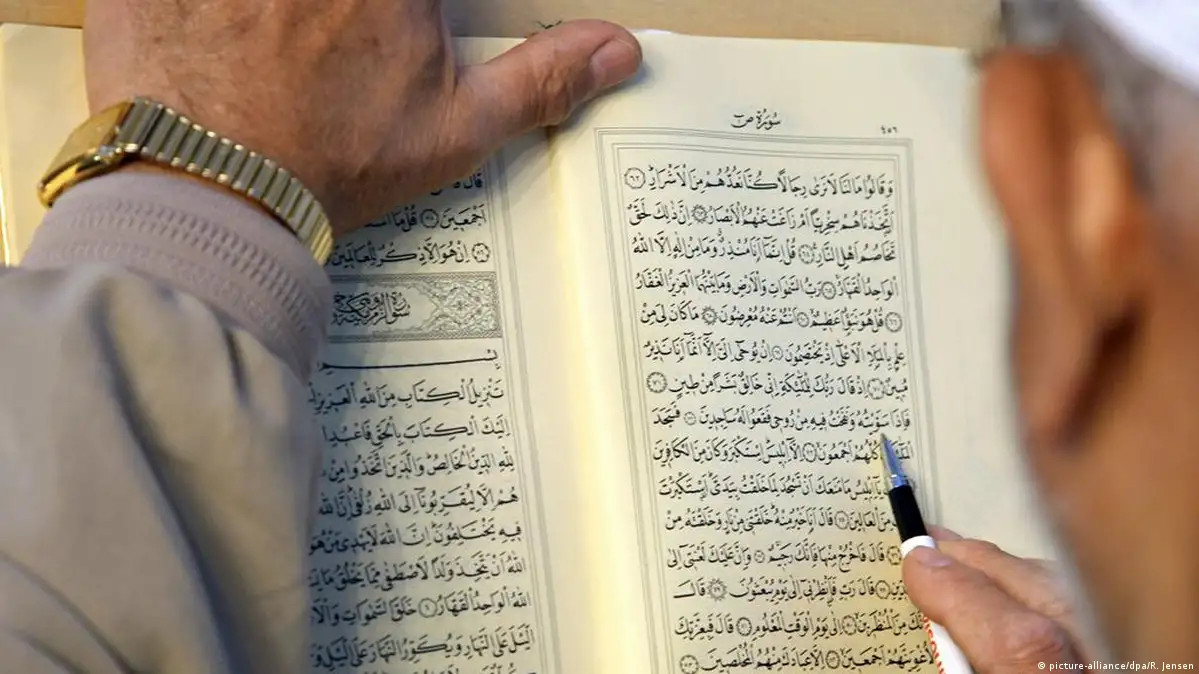 سورة ص ٤٥٦
وقالوا مالنا لانرى رجالا كنا نعدهم من الاشرار ٦٢
اتخذناهم سخريا ام زاغت عنهم الابصار ٦٣ ان ذلك لحق
تخاصم اهل النار ٦٤ قل انما انا منذر وما من اله الا الله
الواحد القهار ٦٥ رب السموات والارض وما بينهما العزيز الغفار
٦٦ قل هو نبؤا عظيم ٦٧ انتم عنه معرضون ٦٨ ما كان لى من
علم بالملا الاعلى اذ يختصمون ٦٩ ان يوحى الى الا انما انا نذير
مبين ٧٠ اذ قال ربك للملئكة انى خالق بشرا من طين ٧١
فاذا سويته ونفخت فيه من روحى فقعوا له ساجدين ٧٢ فسجد
كلهم اجمعون ٧٣ الا ابليس استكبر وكان من الكافرين
يا ابليس ما منعك ان تسجد لما خلقت بيدى استكبرت
من العالين ٧٥ قال انا خير منه خلقتنى من نار وخلقته من
قال فاخرج منها فانك رجيم ٧٧ وان عليك لعنتى الى
قال رب فانظرنى الى يوم يبعثون ٧٩ قال
من المنظرين ٨٠ الى يوم الوقت المعلوم ٨١ قال فبعزتك
لاغوينهم اجمعين ٨٢ الا عبادك منهم المخلصين ٨٣
قال
اجمعين ٨٥ قل ما
٨٦ ان هو الا ذكر للعالمين
سورة الزمر
تنزيل الكتاب من الله العزيز
اليك الكتاب بالحق فاعبد
لله الدين الخالص والذين اتخذوا من
هم الا ليقربونا الى الله زلفى ان الله
فيه يختلفون ان الله لا يهدى من هو
الله ان يتخذ ولدا لاصطفى مما يخلق ما
الله الواحد القهار ٤ خلق السموات والا
اليل على النهار ويكور النهار على اليل و
© picture-alliance/dpa/R. Jensen